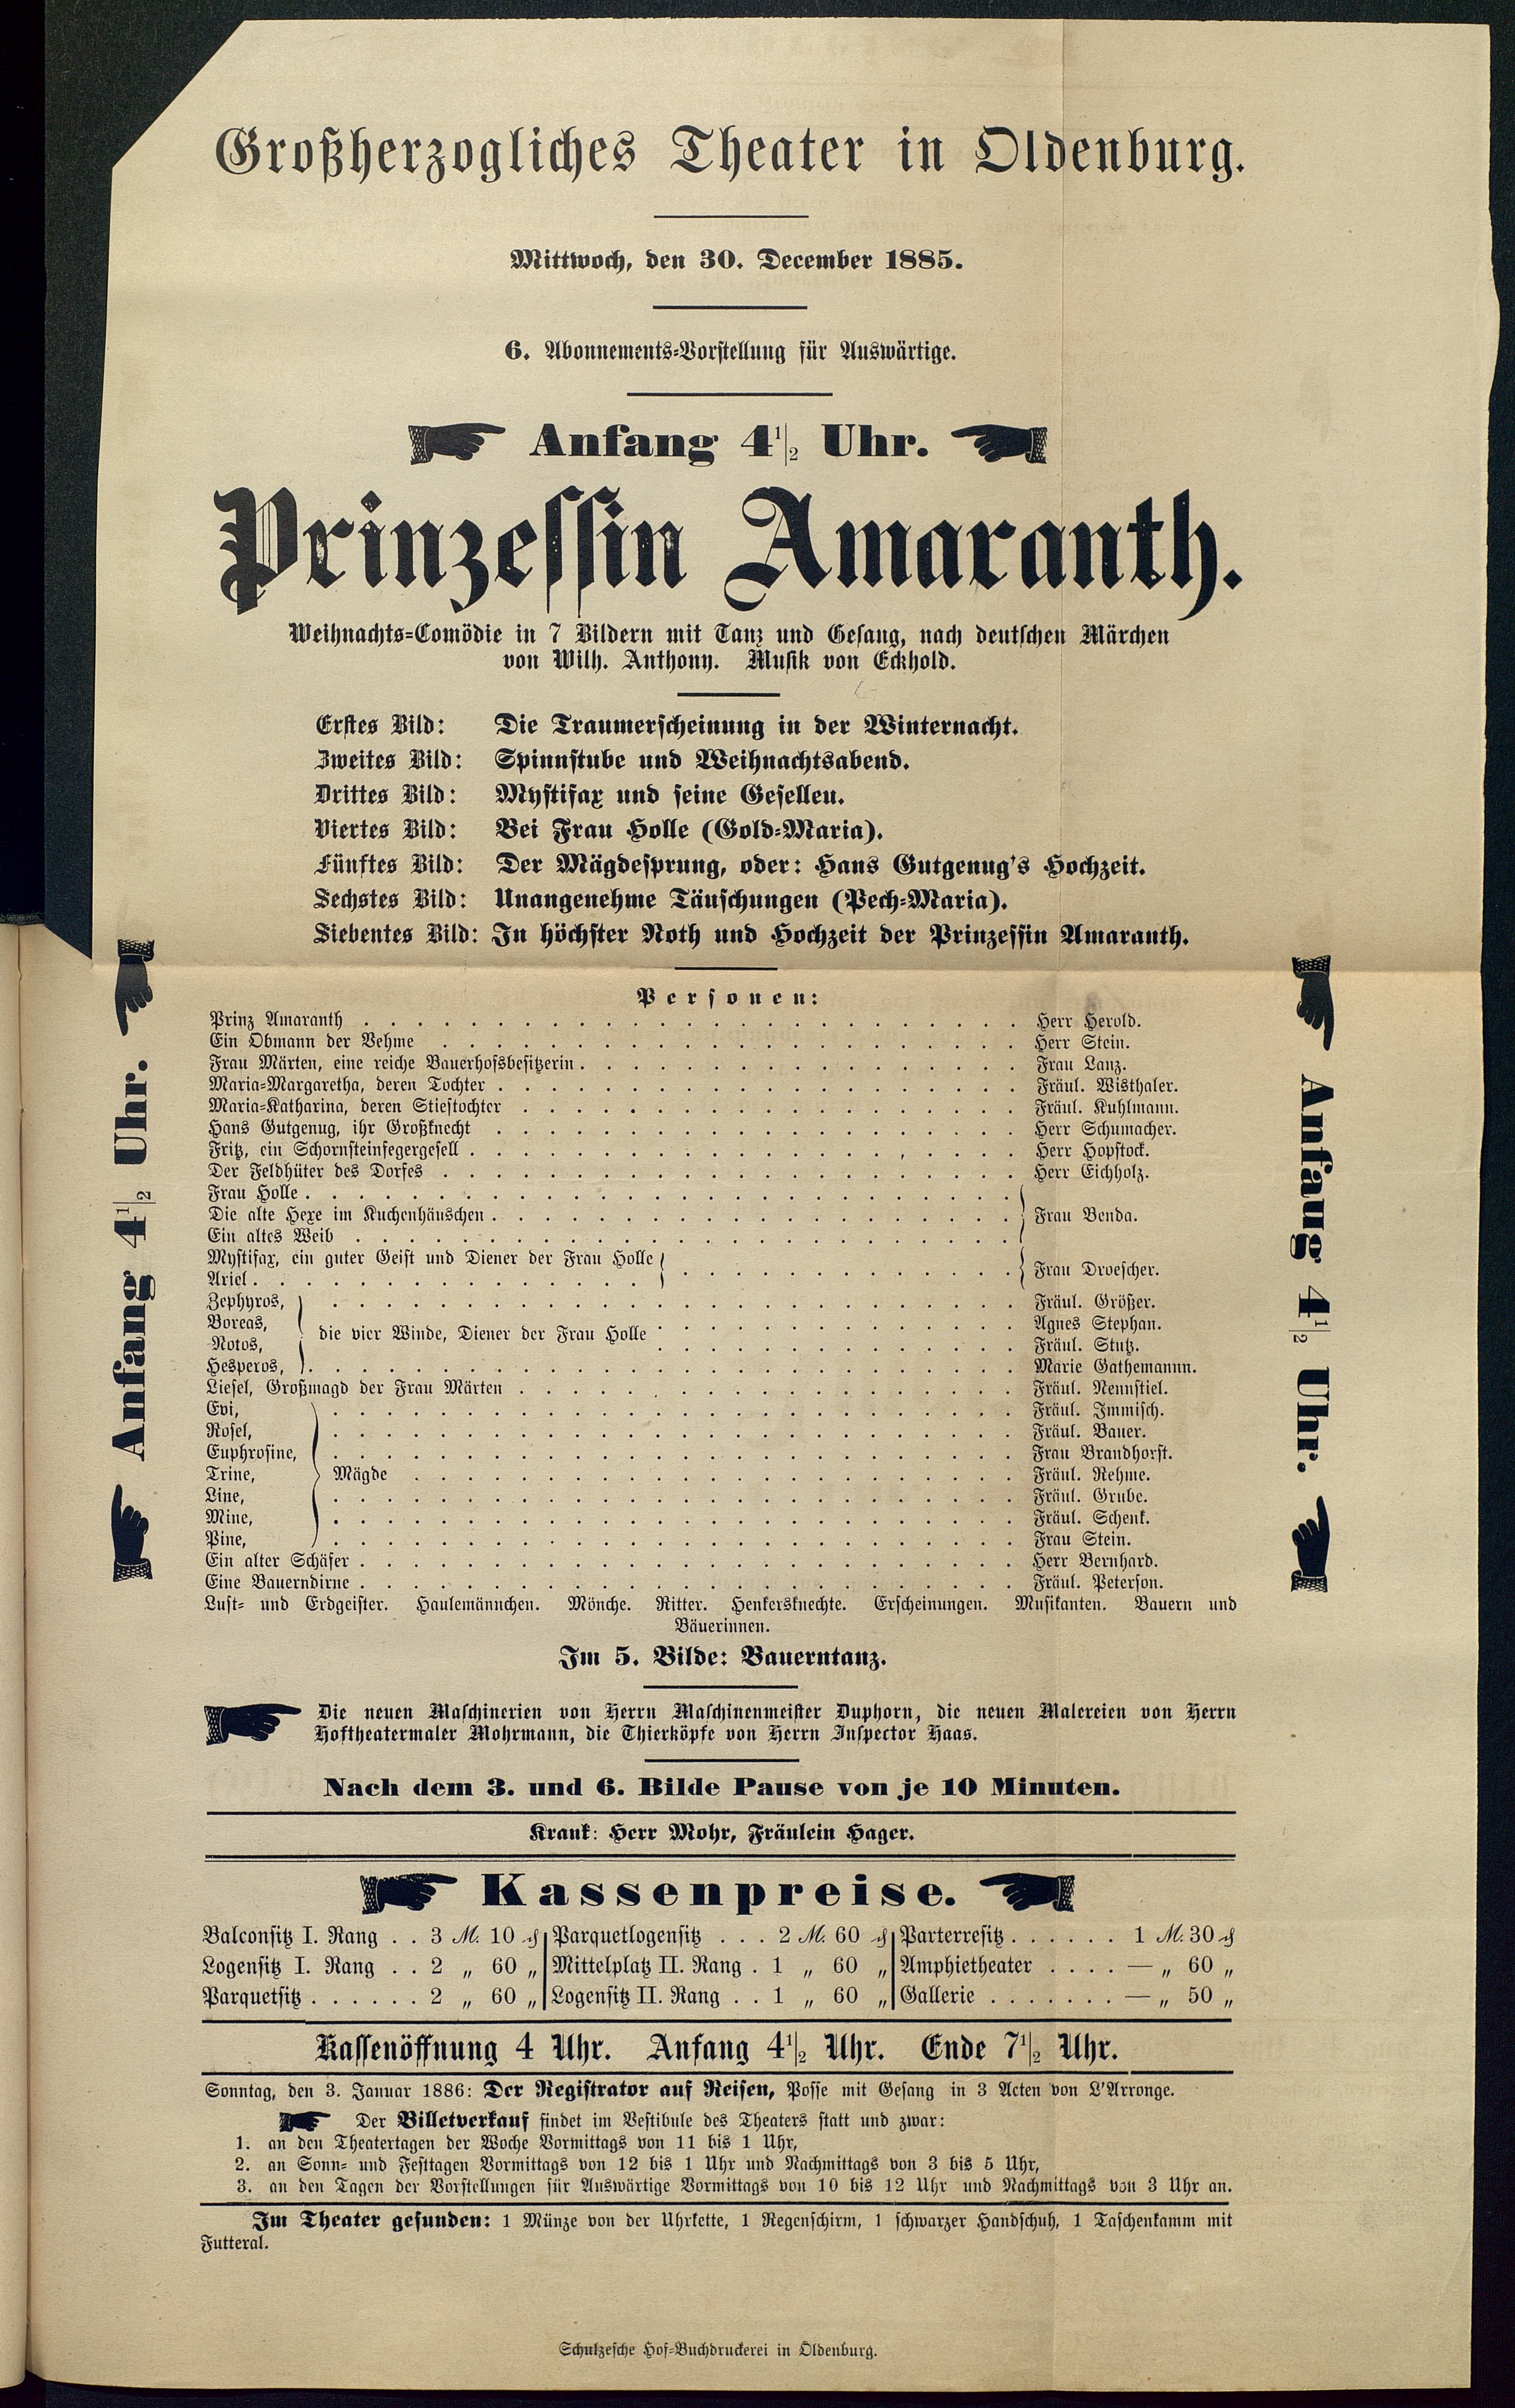 Großherzogliches Theater in Oldenburg.
Mittwoch, den 30. December 1885.
6. Abonnements-Vorstellung für Auswärtige.
Anfang 4½ Uhr.
Prinzessin Amaranth.
Weihnachts-Comödie in 7 Bildern mit Tanz und Gesang, nach deutschen Märchen
von Wilh. Anthony. Musik von Eckhold.
Erstes Bild: Die Traumerscheinung in der Winternacht.
Zweites Bild: Spinnstube und Weihnachtsabend.
Drittes Bild: Mystifax und seine Gesellen.
Viertes Bild: Bei Frau Holle (Gold-Maria).
Fünftes Bild: Der Mägdesprung, oder: Hans Gutgenug's Hochzeit.
Sechstes Bild: Unangenehme Täuschungen (Pech-Maria).
Siebentes Bild: In höchster Noth und Hochzeit der Prinzessin Amaranth.
Personen:
Prinz Amaranth . . . Herr Herold.
Ein Obmann der Vehme . . . Herr Stein.
Frau Märten, eine reiche Bauerhofsbesitzerin . . . Frau Lanz.
Maria-Margaretha, deren Tochter . . . Fräul. Wisthaler.
Maria-Katharina, deren Stieftochter . . . Fräul. Kuhlmann.
Hans Gutgenug, ihr Großknecht . . . Herr Schumacher.
Fritz, ein Schornsteinfegergesell . . . Herr Hopstock.
Der Feldhüter des Dorfes . . . Herr Eichholz.
Frau Holle . . .
Die alte Hexe im Kuchenhäuschen . . . Frau Benda.
Ein altes Weib . . .
Mystifax, ein guter Geist und Diener der Frau Holle
Ariel . . . Frau Droescher.
Zephyros, . . . Fräul. Größer.
Boreas, . . . Agnes Stephan.
die vier Winde, Diener der Frau Holle
Notos, . . . Fräul. Stutz.
Hesperos, . . . Marie Gathemannn.
Liesel, Großmagd der Frau Märten . . . Fräul. Nennstiel.
Evi, . . . Fräul. Immisch.
Rosel, . . . Fräul. Bauer.
Euphrosine, . . . Frau Brandhorst.
Trine, Mägde . . . Fräul. Rehme.
Line, . . . Fräul. Grube.
Mine, . . . Fräul. Schenk.
Pine, . . . Frau Stein.
Ein alter Schäfer . . . Herr Bernhard.
Eine Bauerndirne . . . Fräul. Peterson.
Luft- und Erdgeister. Haulemännchen. Mönche. Ritter. Henkersknechte. Erscheinungen. Musikanten. Bauern und
Bäuerinnen.
Im 5. Bilde: Bauerntanz.
Die neuen Maschinerien von Herrn Maschinenmeister Duphorn, die neuen Malereien von Herrn
Hoftheatermaler Mohrmann, die Thierköpfe von Herrn Inspector Haas.
Nach dem 3. und 6. Bilde Pause von je 10 Minuten.
Krank: Herr Mohr, Fräulein Hager.
Kassenpreise.
Balconsitz I. Rang . . 3 M. 10 ₰ Parquetlogensitz . . . 2 M. 60 ₰ Parterresitz . . . . . . 1 M. 30 ₰
Logensitz I. Rang . . 2 „ 60 „ Mittelplatz II. Rang . 1 „ 60 „ Amphietheater . . . . — „ 60 „
Parquetsitz . . . . . . 2 „ 60 „ Logensitz II. Rang . . 1 „ 60 „ Gallerie . . . . . . . — „ 50 „
Kassenöffnung 4 Uhr. Anfang 4½ Uhr. Ende 7½ Uhr.
Sonntag, den 3. Januar 1886: Der Registrator auf Reisen, Posse mit Gesang in 3 Acten von L'Arronge.
Der Billetverkauf findet im Vestibule des Theaters statt und zwar:
1. an den Theatertagen der Woche Vormittags von 11 bis 1 Uhr,
2. an Sonn- und Festtagen Vormittags von 12 bis 1 Uhr und Nachmittags von 3 bis 5 Uhr,
3. an den Tagen der Vorstellungen für Auswärtige Vormittags von 10 bis 12 Uhr und Nachmittags von 3 Uhr an.
Im Theater gefunden: 1 Münze von der Uhrkette, 1 Regenschirm, 1 schwarzer Handschuh, 1 Taschenkamm mit
Futteral.
Schulzesche Hof-Buchdruckerei in Oldenburg.
Anfang 4½ Uhr.
Anfang 4½ Uhr.